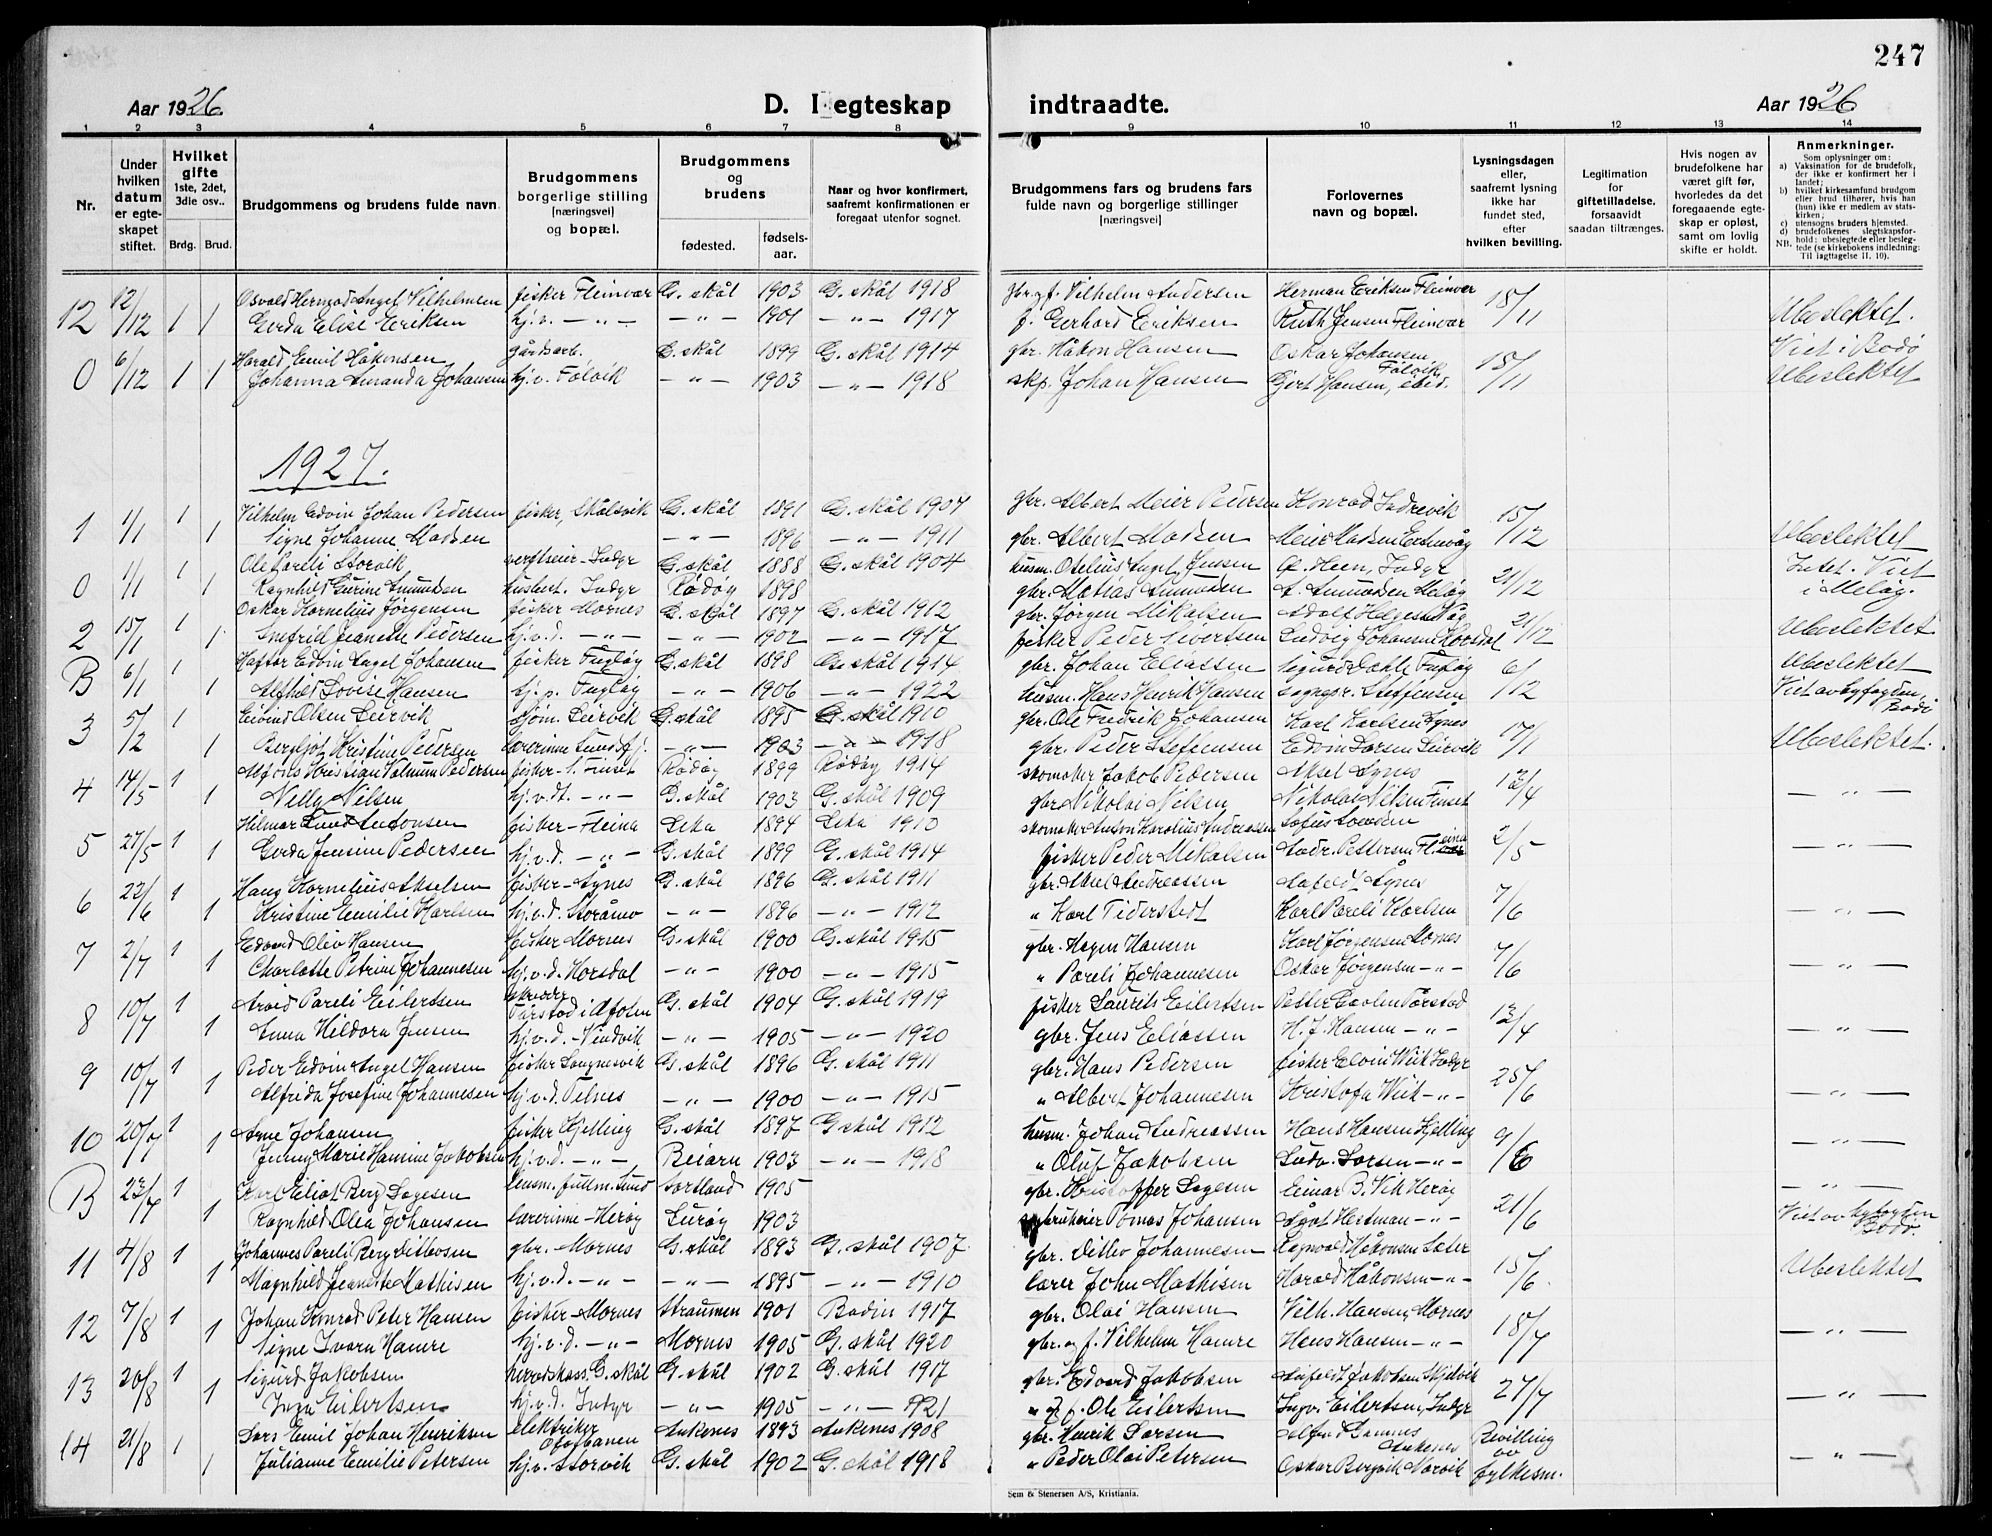 247
Aar 1926.
D. I egteskap indtraadte.
Aar 1926.
1 2 3 4 5 6 7 8 9 10 11 12 13 14
Nr.
Under hvilken datum er egte-skapet stiftet.
Hvilket gifte 1ste, 2det, 3die osv..
Brdg. Brud.
Brudgommens og brudens fulde navn.
Brudgommens borgerlige stilling [næringsvei] og bopæl.
Brudgommens og brudens
fødested.
fødsels-aar.
Naar og hvor konfirmert, saafremt konfirmationen er foregaat utenfor sognet.
Brudgommens fars og brudens fars fulde navn og borgerlige stillinger [næringsvei]
Forlovernes navn og bopæl.
Lysningsdagen eller, saafremt lysning ikke har fundet sted, efter hvilken bevilling.
Legitimation for giftetilladelse, forsaavidt saadan tiltrænges.
Hvis nogen av brudefolkene har været gift før, hvorledes da det foregaaende egte-skap er opløst, samt om lovlig skifte er holdt.
Anmerkninger.
Som oplysninger om:
a) Vaksination for de brudefolk, der ikke er konfirmert her i landet;
b) hvilket kirkesamfund brudgom eller brud tilhører, hvis han (hun) ikke er medlem av stats-kirken;
c) utensogns bruders hjemsted.
d) brudefolkenes slegtskapsfor-hold: ubeslegtede eller besleg-tede (se kirkebokens indledning:
NB. Til iagttagelse II. 10).
12 12/12 1 1 Osvald Hermod Angel Vilhelmsen fisker Fleinvær G. skål 1903 G. skål 1918 gbr. og f. Vilhelm Andersen Herman Eriksen Fleinvær 18/11 Ubeslektet.
Gerda Elise Eriksen hj.v. — " — — " — 1901 — " — 1917 f. Gerhard Eriksen Ruth Jensen Fleinvær
0 6/12 1 1 Harald Emil Håkonsen gårdsarb. G. skål 1899 G. skål 1914 gbr. Håkon Hansen Oskar Johansen, Følvik 15/11 Viet i Bodø
Johanna Amanda Johansen hj.v. Følvik — " — 1903 — " — 1918 skp. Johan Hansen Gjert Hansen, ibid. Ubeslektet
1927.
1 1/1 1 Vilhelm Edvin Johan Pedersen fisker, Skålsvik G. skål 1891 G. skål 1907 gbr. Albert Meier Pedersen Konrad Indrevik 15/12
1 Signe Johanne Madsen — " — 1896 — " — 1911 gbr. Albert Madsen Meier Madsen Ubeslektet
0 1/1 1 Ole Pareli Storvik Indyr G. skål 1888 G. skål 1904 husm. Otelius Angel Jensen Heen, Indyr 21/12 Intet. Viet
Ragnhild Gurine Amunden Indyr Rødøy 1898 gbr. Matias Amunden A. Amunden Meløy i Meløy.
2 15/1 1 Oskar Kornelius Jørgensen fisker Mornes G. skål 1897 G. skål 1912 gbr. Jørgen Mikalsen 21/12 Ubeslektet
1 Snefrid Jeanette Pedersen hj.v.d. — " — — " — 1902 — " — 1917 fisker Peder Evertsen Ludvig Johansen Horsdal
B 6/1 1 Haftor Edvin Angel Johansen fisker Fugløy G. skål 1898 G. skål 1914 gbr. Johan Eliassen Sigurd Dahle Fugløy 6/12 Ubeslektet
1 Alfhild Lovise Hansen hj.v. Fugløy — " — 1906 — " — 1922 husm. Hans Henrik Hansen sogngpr. Steffensen Viet av byfogden, Bodø
3 5/2 1 Eivind Olsen Leirvik sjøm. Leirvik G. skål 1895 G. skål 1910 gbr. Ole Fredrik Johansen Karl Karlsen Synes 17/1
1 Bergljot Kristine Pedersen lærerinne Sund — " — 1903 — " — 1918 gbr. Peder Steffensen Edvin Larsen Leirvik Ubeslektet.
4 14/5 1 Alfons Kristian Volmum Pedersen fisker - Finset Rødøy 1899 Rødøy 1914 skomaker Jakob Pedersen Aksel Synes 13/4
1 Nelly Nilsen hj.v.d. — " — G. skål 1903 G. skål 1909 gbr. Nikolai Nilsen Nikolai Nilsen Finset — " —
5 27/5 1 Hilmar Lund Antonsen fisker - Fleina Leka 1894 Leka 1910 skomaker Anton Karolius Andreassen 2/5
1 Gerda Jensine Pedersen hj.v.d. — " — G. skål 1899 G. skål 1914 fisker Peder Mikalsen Andr. Pettersen Fleina — " —
6 22/6 1 Hans Kornelius Akselsen fisker - Synes G. skål 1896 G. skål 1911 gbr. Aksel Andreassen Synes 7/6
1 Kristine Emilie Karlsen hj.v.d. Storåmo — " — 1896 — " — 1912 " Karl Tiderstedt Karl Pareli Karlsen — " —
7 2/7 1 Edvard Oliv Hansen fisker Mornes G. skål 1900 G. skål 1915 gbr. Hagen Hansen Karl Jørgensen Mornes 7/6
1 Charlotte Petrine Johannesen hj.v.d. Horsdal — " — 1900 — " — 1915 " Pareli Johannesen Oskar Jørgensen — " — — " —
8 10/7 1 Arvid Pareli Eilertsen skredder Tårstad i Afolen G. skål 1904 G. skål 1919 fisker Laurits Eilertsen Petter Tårstad 13/4
1 Anna Hildora Jensen hj.v.d. - Vindvik — " — 1905 — " — 1920 gbr. Jens Eliassen H. J. Hansen — " — — " —
9 10/7 1 Peder Edvin Angel Hansen fisker Sørgnesvik G. skål 1896 G. skål 1911 gbr. Hans Pedersen fisker Edvin Wiik Indyr 25/6
1 Alfrida Josefine Johannesen hj.v.d. Selnes — " — 1900 — " — 1915 " Albert Johannesen Kristofa Wiik — " — — " —
10 20/7 1 Arne Johansen fisker Kjelling G. skål 1897 G. skål 1912 husm. Johan Andreassen Hans Hansen Kjelling 9/6
1 Jenny Marie Hamine Jakobsen hj.v.d. — " — Beiarn 1903 — " — 1918 " Oluf Jakobsen Ludv. Larsen — " — — " —
B 23/7 1 Karl Eiliot Berg Lagesen lensm. fullm. Sund Sortland 1905 gbr. Kristoffer Lagesen Einar B. Vik Herøy 21/6 — " —
1 Ragnhild Olea Johansen lærerinne - Herøy Lurøy 1903 Tomas Johansen Hestman — " — Viet av byfogden Bodø.
11 4/8 1 Johannes Pareli Berg Ditlevsen gbr. Mornes G. skål 1893 G. skål 1907. gbr. Ditlev Johannesen Ragnvald Håkonsen Sæter 15/6.
1 Magnhild Jeanette Mathisen hj.v.d. — " — — " — 1895 — " — 1910 lærer John Mathisen Harald Håkonsen — " — Ubeslektet
12 7/8 1 Johan Konrad Peter Hansen fisker - Mornes Straumen 1901 Bodin 1917 gbr. Olai Hansen Vilh. Hansen, Mornes 18/7
1 Signe Ivara Hamre hj.v.d. — " — Mornes 1905 G. skål 1920 gbr. og f. Vilhelm Hamre Hans Hansen — " — — " —
13 20/8 1 Sigurd Jakobsen herredskass. G. skål G. skål 1902 G. skål 1917 gbr. Edvard Jakobsen Leifeldt Jakobsen Skjelvik 27/7
1 Inga Eilertsen hj.v.d. Indyr — " — 1905 — " — 1921 " og f. Ole Eilertsen Ingv. Eilertsen, Indyr — " —
14 21/8 1 Lars Emil Johan Henriksen elektriker Ofotbanen Ankenes 1893 Ankenes 1908 gbr. Henrik Larsen Ankenes Bevilling av fylkesm.
1 Julianne Emilie Petersen hj.v. Storvik G. skål 1902 G. skål 1918 " Peder Olai Petersen Oskar Bergvik Narvik — " —
Sem & Stenersen A/S, Kristiania.